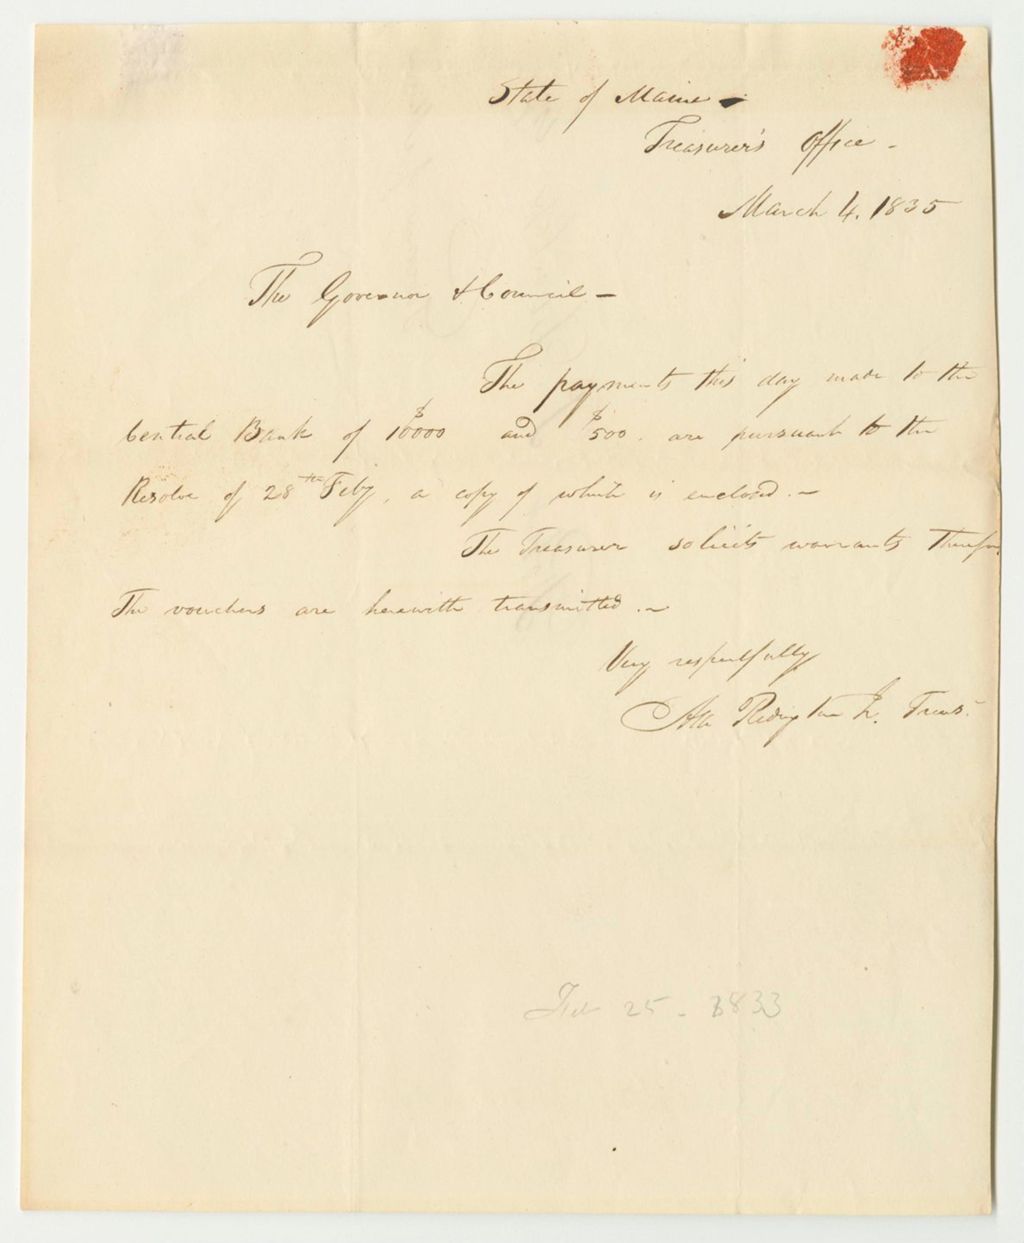 State of Maine -
Treasurer's Office -
March 4. 1835
The Governor & Council -
The payments this day made to the
Central Bank of $10000 and $500. are pursuant to the
Resolve of 28th Feby, a copy of which is enclosed. -
The Treasurer solicits warrants therefor
The vouchers are herewith transmitted. -
Very respectfully
Asa Redington Jr. Treas.
Feb 25 - 1833